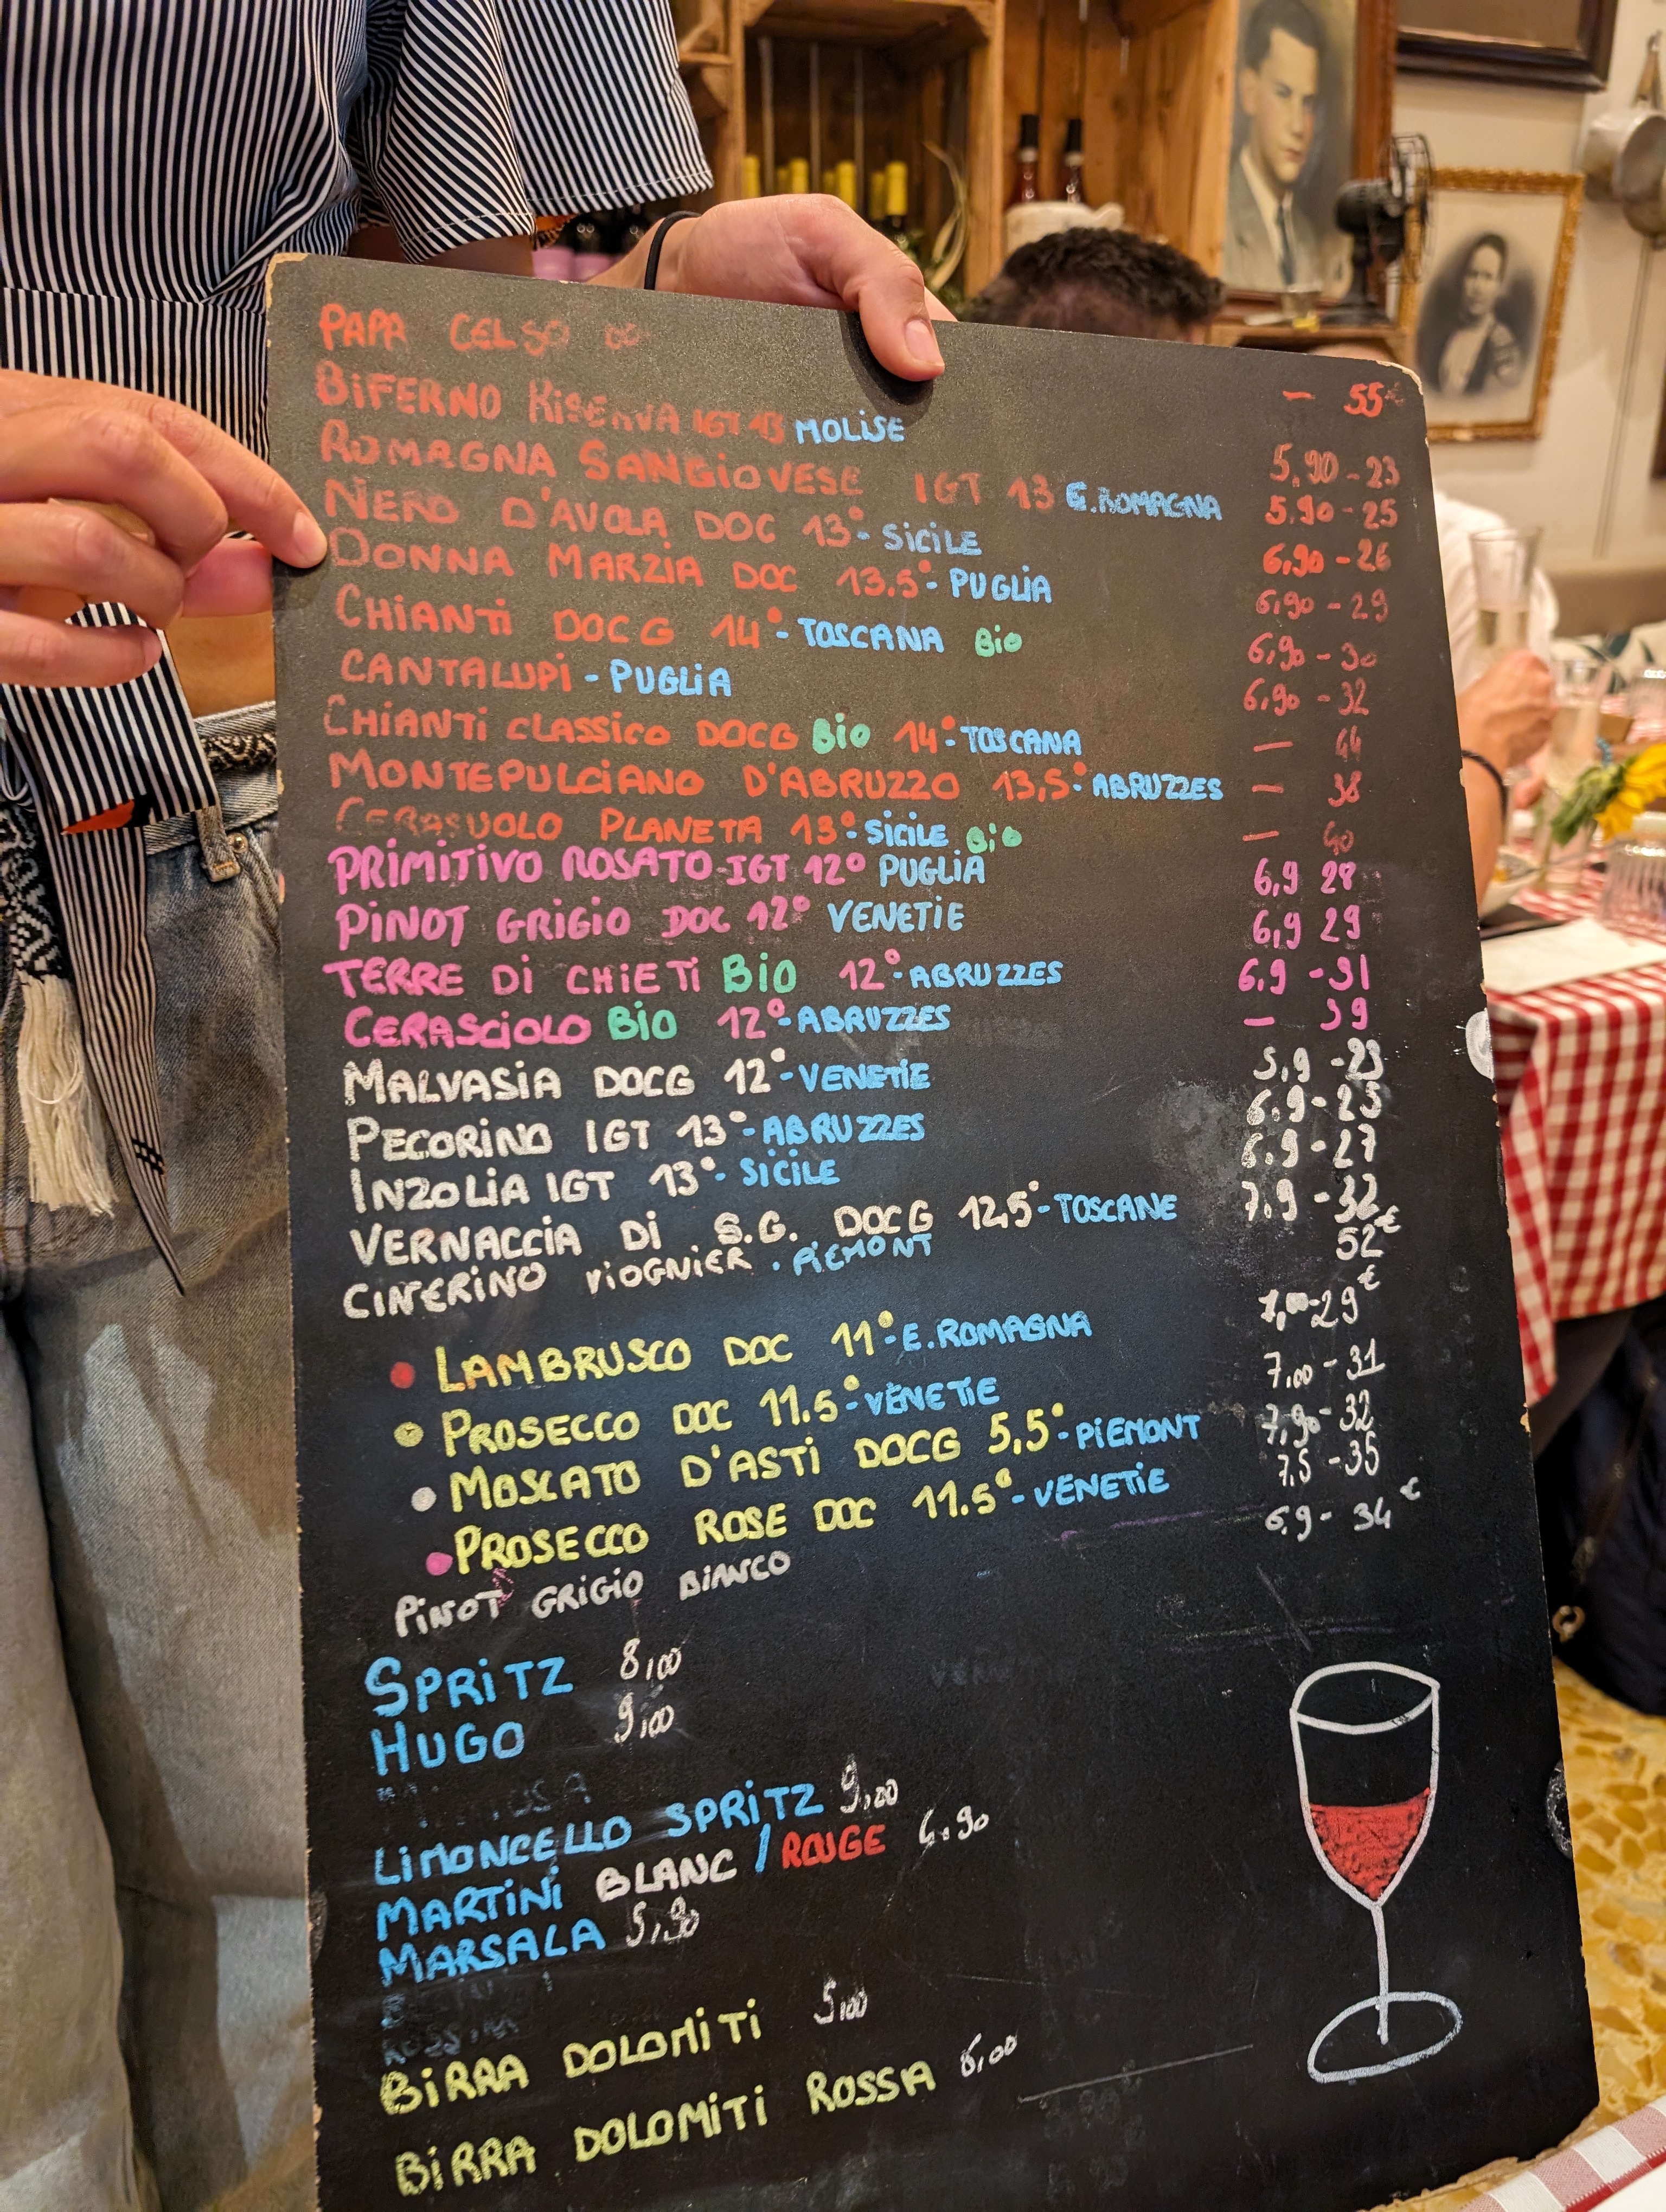 PAPA CELSO — 55€
BIFERNO RISERVA IGT 13 MOLISE 5,90 - 23
ROMAGNA SANGIOVESE IGT 13 E.ROMAGNA 5.90 - 25
NERO D'AVOLA DOC 13° - SICILE 6,90 - 26
DONNA MARZIA DOC 13.5° - PUGLIA 6,90 - 29
CHIANTI DOCG 14° - TOSCANA Bio 6,90 - 30
CANTALUPI - PUGLIA 6,90 - 32
CHIANTI CLASSICO DOCG Bio 14° - TOSCANA — 44
MONTEPULCIANO D'ABRUZZO 13,5° ABRUZZES — 38
CERASUOLO PLANETA 13° - SICILE Bio — 40
PRIMITIVO ROSATO - IGT 12° PUGLIA 6,9 28
PINOT GRIGIO DOC 12° VENETIE 6,9 29
TERRE DI CHIETI BIO 12° - ABRUZZES 6,9 - 31
CERASCIOLO BIO 12° - ABRUZZES — 39
MALVASIA DOCG 12° - VENETIE 5,9 - 23
PECORINO IGT 13° - ABRUZZES 6.9 - 25
INZOLIA IGT 13° - SICILE 6.9 - 27
VERNACCIA DI S.G. DOCG 12,5° - TOSCANE 7.9 - 32
CINERINO VIOGNIER . PIEMONT 52€
LAMBRUSCO DOC 11° - E.ROMAGNA 7,00 - 29€
PROSECCO DOC 11.5° - VENETIE 7,00 - 31
MOSCATO D'ASTI DOCG 5,5° - PIEMONT 7,90 - 32
PROSECCO ROSE DOC 11.5° - VENETIE 7,5 - 35
PINOT GRIGIO BIANCO 6,9 - 34€
SPRITZ 8,00
HUGO 9,00
LIMONCELLO SPRITZ 9,00
MARTINI BLANC / ROUGE 6.90
MARSALA 5,90
BIRRA DOLOMITI 5,00
BIRRA DOLOMITI ROSSA 6,00